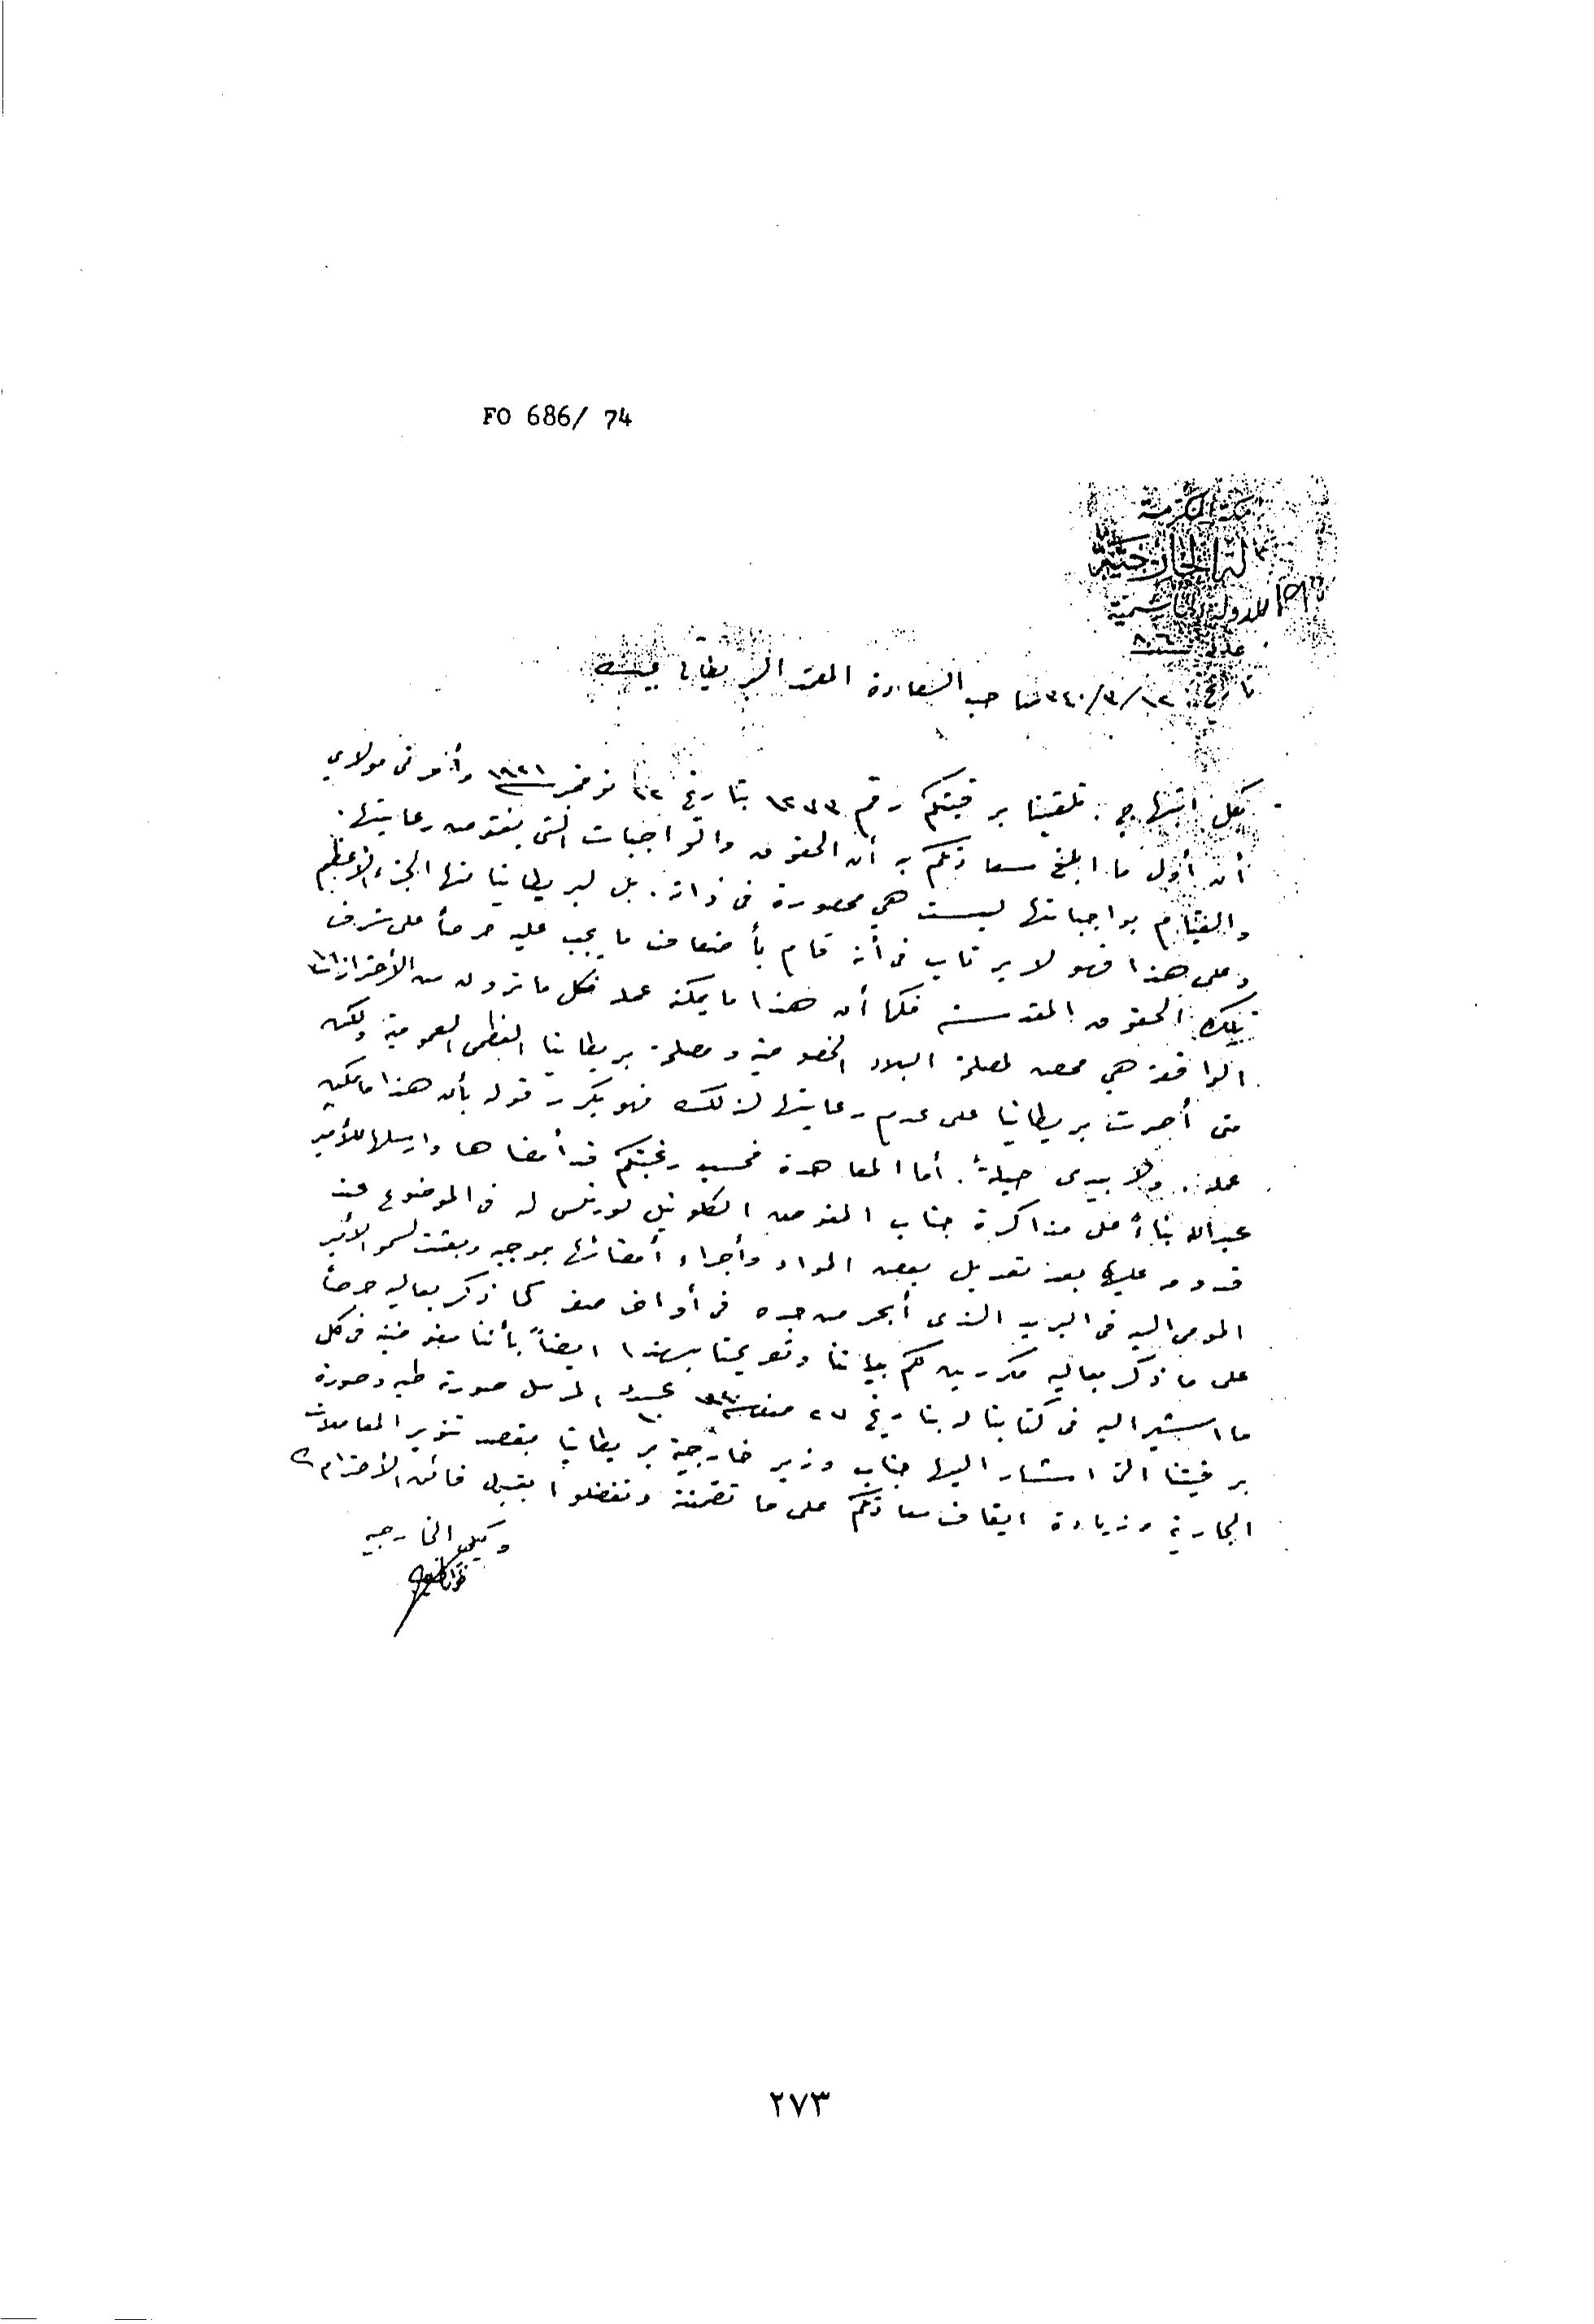 FO 686/ 74
مكة المكرمة
الخارجية
للدولة الهاشمية
عدد ٨٠٦
تاريخ ١٢/٣/٣٤٠ صاحب السعادة المعتمد البريطاني بجده
بكل ابتهاج تلقينا برقيتكم رقم ١٢٣٣ بتاريخ ١٢ نوفمبر ١٩٢١ وأمرني مولاي
أن أول ما ابلغ سعادتكم به أن الحقوق والواجبات التي يفتقر من رعايتها.
والقيام بواجباتها ليست هي محصورة في ذاته. بل لبريطانيا منها الجزء الأعظم
وعلى هذا فهو لا يرتاب في أنه قام بأضعاف ما يجب عليه حرصاً على شرف
تلك الحقوق المقدسة فكما أن هذا ما يمكنه عمله فكل ما ترونه من الأحترازات
الواقعة هي محض لمصلحة البلاد الخصوصية ومصلحة بريطانيا العظمى العمومية ولكن
متى أصرت بريطانيا على عدم رعايتها لذلك فهو يكرر قوله بأن هذا ما يمكن
عمله. ولا يبدى حيلةً. أما المعاهدة فحسب رغبتكم قد أمضاها وارسلها للأمير
عبدالله بناءً على مذاكرة جناب المفوض الكلونيل لورنس له في الموضوع عند
قدومه عليه بعد تعديل بعض المواد وأجراء أمضائها بموجبه وبعثت لسمو الأمير
المومى اليه في البريد الذي أبحر من جده في أواخر صفر كما ذكر بعاليه حرصاً
على ما ذكر بعاليه مكررين لكم بياننا وتصريحنا بهذا ايضاً بأننا مفوضينه في كل
ما استشير اليه في كتابنا له بتاريخ ٢٧ صفر المرسل صورته طيه وصورة
برقيتنا التي اشار اليها جناب وزير خارجية بريطانيا بقصد تنوير المعاملات
الجارية وزيادة ايقاف سعادتكم على ما تضمنته وتفضلوا بقبول فائق الأحترام
وكيل الخارجيه
٢٧٣